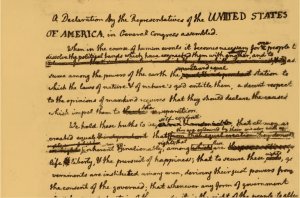 A Declaration by the Representatives of the UNITED STATES
OF AMERICA, in General Congress assembled.
When in the course of human events it becomes necessary for
dissolve the political bands which have connected them with another, and to
assume among the powers of the earth the station to
which the laws of nature & of nature's god entitle them, a decent respect
to the opinions of mankind requires that they should declare the causes
which impel them to the separation.
We hold these truths to be that all men are
created equal
life, liberty, & the pursuit of happiness; that to secure these, go
vernments are instituted among men, deriving their just powers from
the consent of the governed; that whenever any form of government
the right of the people to alter